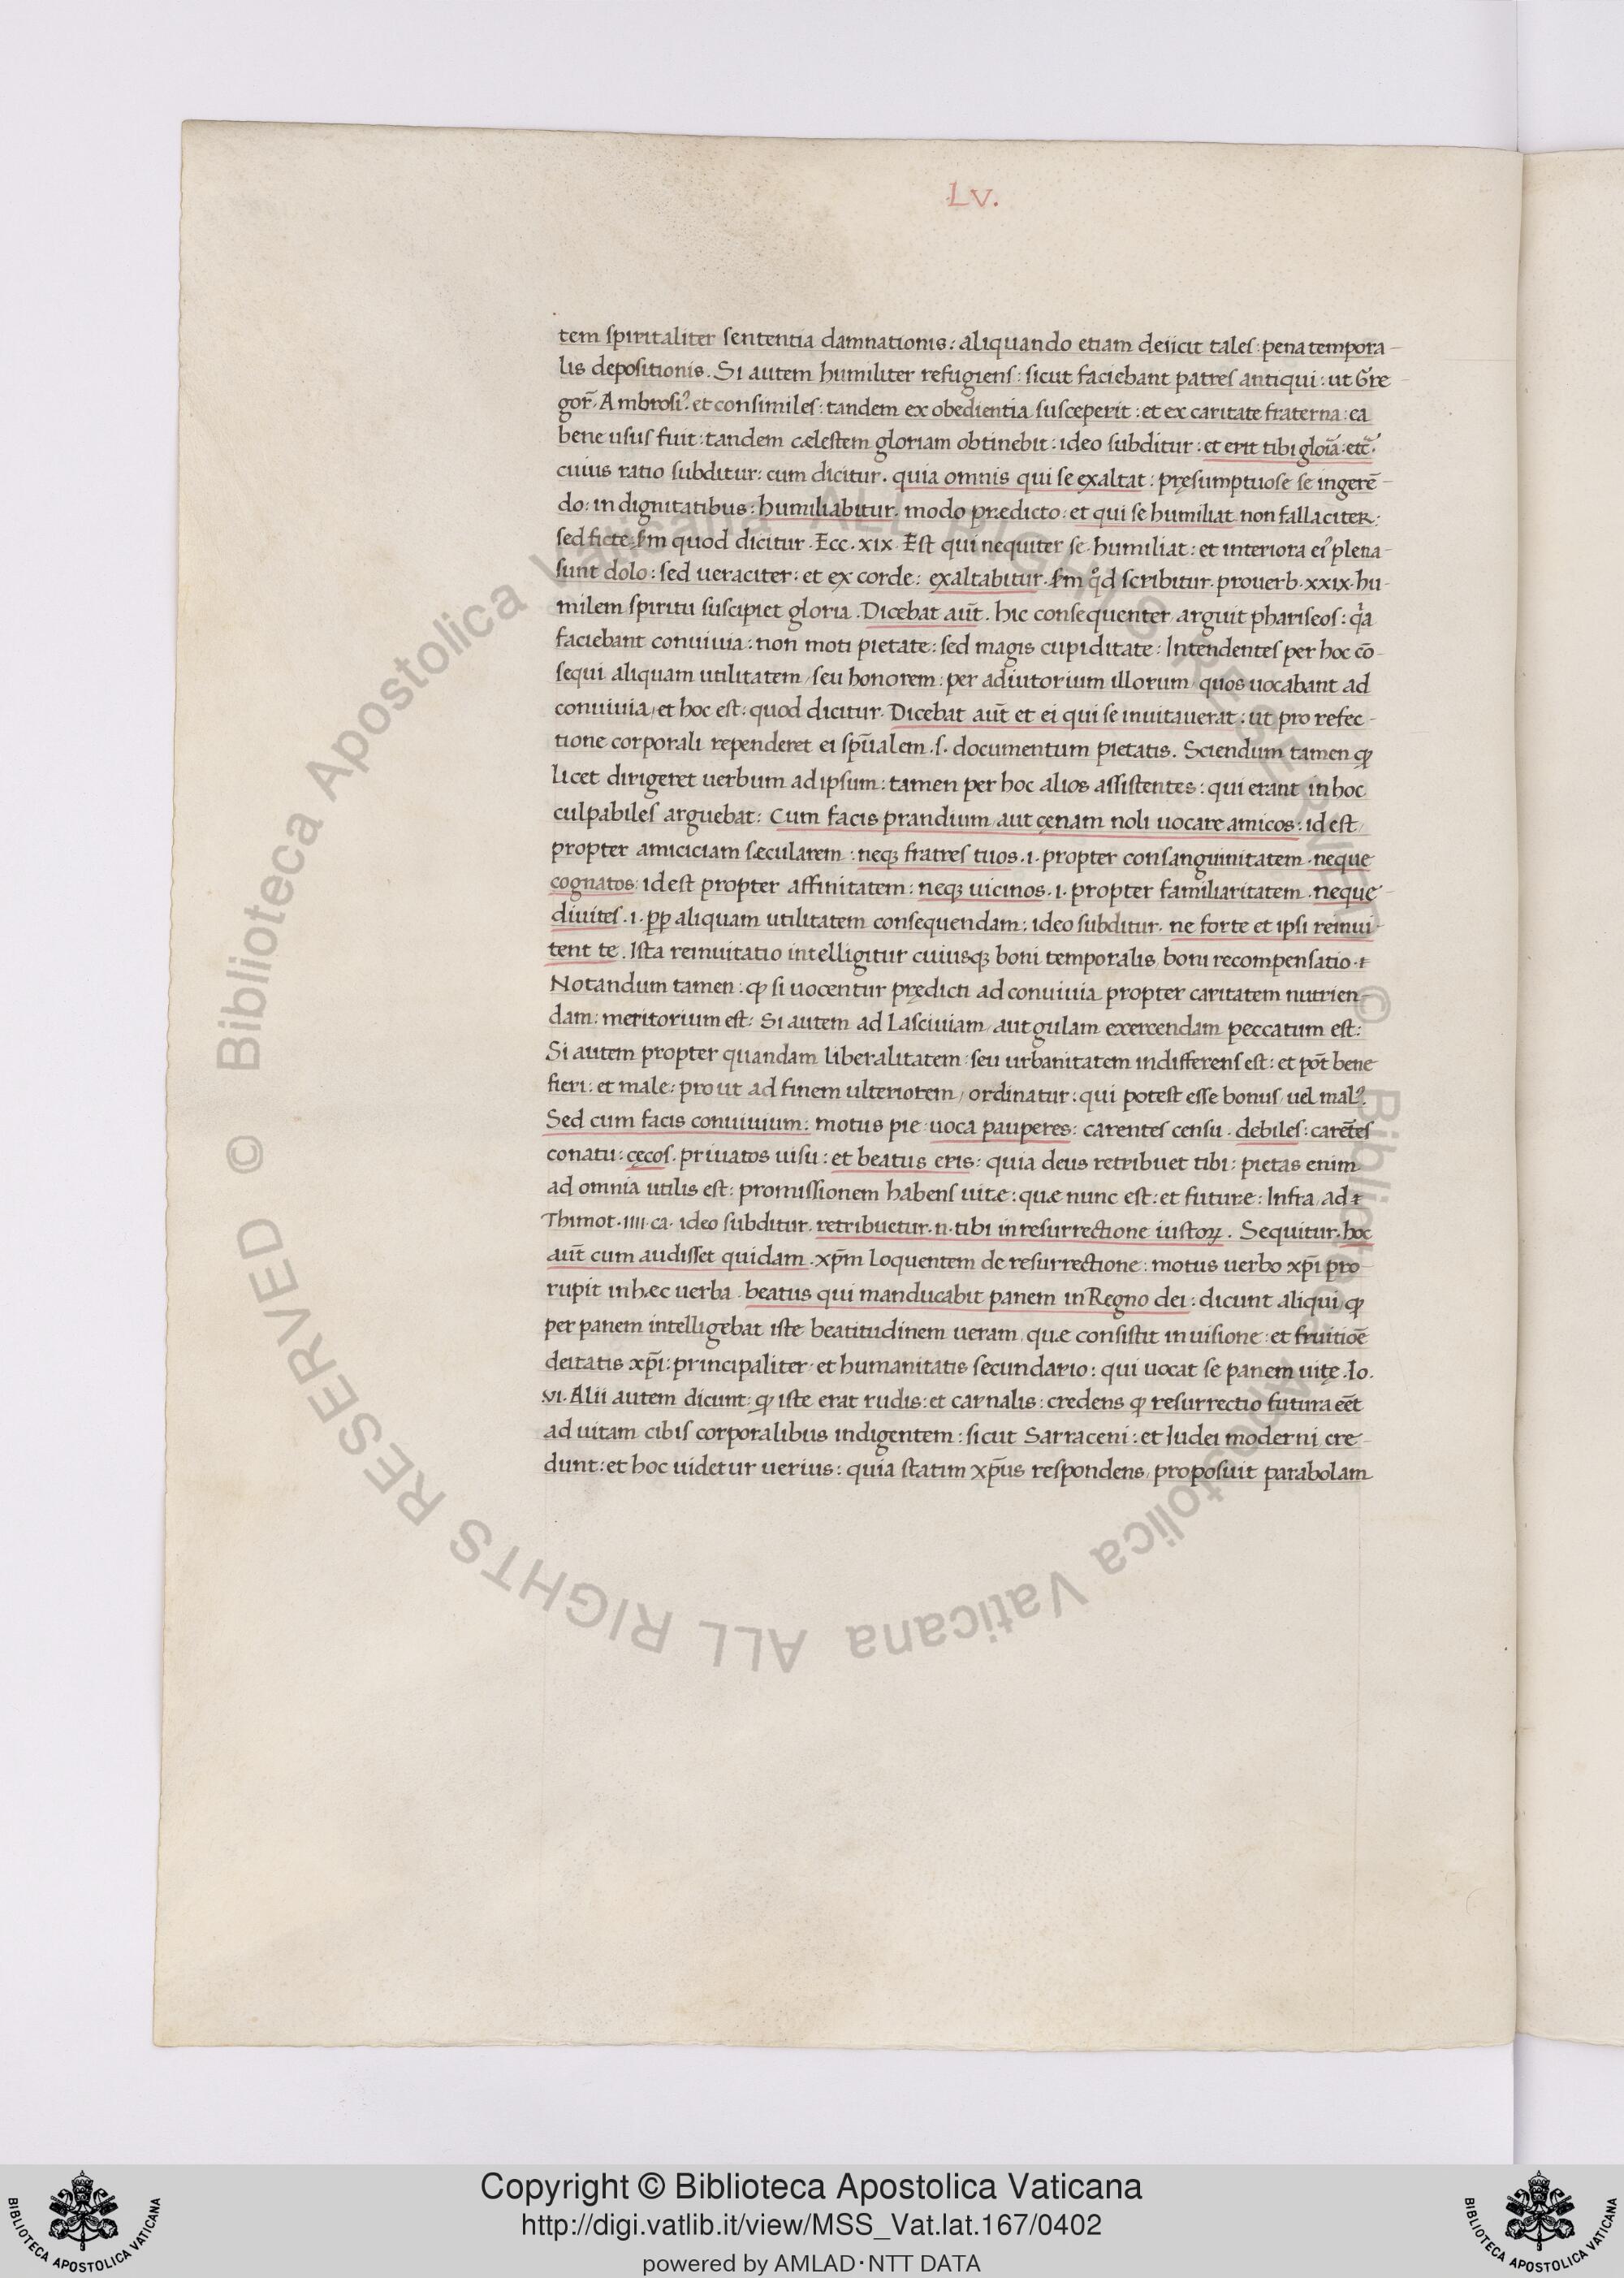 LV.
tem spiritaliter sententia damnationis: aliquando etiam deiicit tales: pena tempora-
lis depositionis. Si autem humiliter refugiens: sicut faciebant patres antiqui: ut Gre-
gor̃. Ambrosiꝰ. et consimiles: tandem ex obedientia susceperit: et ex caritate fraterna: ea
bene usus fuit: tandem cælestem gloriam obtinebit: ideo subditur: et erit tibi gloĩa: etc̃.
cuius ratio subditur: cum dicitur. quia omnis qui se exaltat: pręsumptuose se ingerẽ-
do: in dignitatibus: humiliabitur. modo prædicto: et qui se humiliat non fallaciter:
sed ficte: ẜm quod dicitur. Ecc. xix. Est qui nequiter se humiliat: et interiora eiꝰ plena
sunt dolo: sed ueraciter: et ex corde: exaltabitur. ẜm qͦd scribitur. prouerb. xxix. hu-
milem spiritu suscipiet gloria. Dicebat aut̃. hic consequenter arguit phariseos: qͥa
faciebant conuiuia: non moti pietate: sed magis cupiditate: Intendentes per hoc cõ-
sequi aliquam utilitatem / seu honorem: per adiutorium illorum / quos uocabant ad
conuiuia / et hoc est: quod dicitur. Dicebat aut̃ et ei qui se inuitauerat: ut pro refec-
tione corporali rependeret ei sp̃ualem .s. documentum pietatis. Sciendum tamen ꝙ
licet dirigeret uerbum ad ipsum: tamen per hoc alios assistentes: qui erant in hoc
culpabiles arguebat: Cum facis prandium / aut cęnam noli uocare amicos: id est /
propter amiciciam sæcularem: neqꝫ fratres tuos .i. propter consanguinitatem. neque
cognatos: id est propter affinitatem: neqꝫ uicinos .i. propter familiaritatem. neque
diuites .i. ꝓꝑ aliquam utilitatem consequendam: ideo subditur. ne forte et ipsi reinui-
tent te. Ista reinuitatio intelligitur cuiusqꝫ boni temporalis / boni recompensatio.
Notandum tamen: ꝙ si uocentur prędicti ad conuiuia propter caritatem nutrien-
dam: meritorium est: Si autem ad Lasciuiam / aut gulam exercendam peccatum est:
Si autem propter quandam liberalitatem: seu urbanitatem indifferens est: et pot̃ bene
fieri: et male: prout ad finem ulteriorem / ordinatur: qui potest esse bonus / uel malꝰ.
Sed cum facis conuiuium: motus pie: uoca pauperes: carentes censu. debiles: carẽtes
conatu: cęcos. priuatos uisu: et beatus eris: quia deus retribuet tibi: pietas enim
ad omnia utilis est: promissionem habens uitæ: quæ nunc est: et future: Infra / ad
Thimot. IIII. ca. ideo subditur. retribuetur .n. tibi in resurrectione iustoꝝ. Sequitur. hoc
aut̃ cum audisset quidam. xp̃m Loquentem de resurrectione: motus uerbo xp̃i pro
rupit in hæc uerba. beatus qui manducabit panem in Regno dei: dicunt aliqui / ꝙ
per panem intelligebat iste beatitudinem ueram / quæ consistit in uisione: et fruitiõe
deitatis xp̃i: principaliter et humanitatis secundario: qui uocat se panem uitę. Io.
VI. Alii autem dicunt: ꝙ iste erat rudis: et carnalis: credens ꝙ resurrectio futura eẽt
ad uitam cibis corporalibus indigentem: sicut Sarraceni: et Iudei moderni cre-
dunt: et hoc uidetur uerius: quia statim xp̃us respondens / proposuit parabolam
© Biblioteca Apostolica Vaticana ALL RIGHTS RESERVED
© Biblioteca Apostolica Vaticana ALL RIGHTS RESERVED
Copyright © Biblioteca Apostolica Vaticana
http://digi.vatlib.it/view/MSS_Vat.lat.167/0402
powered by AMLAD·NTT DATA
BIBLIOTECA APOSTOLICA VATICANA
BIBLIOTECA APOSTOLICA VATICANA